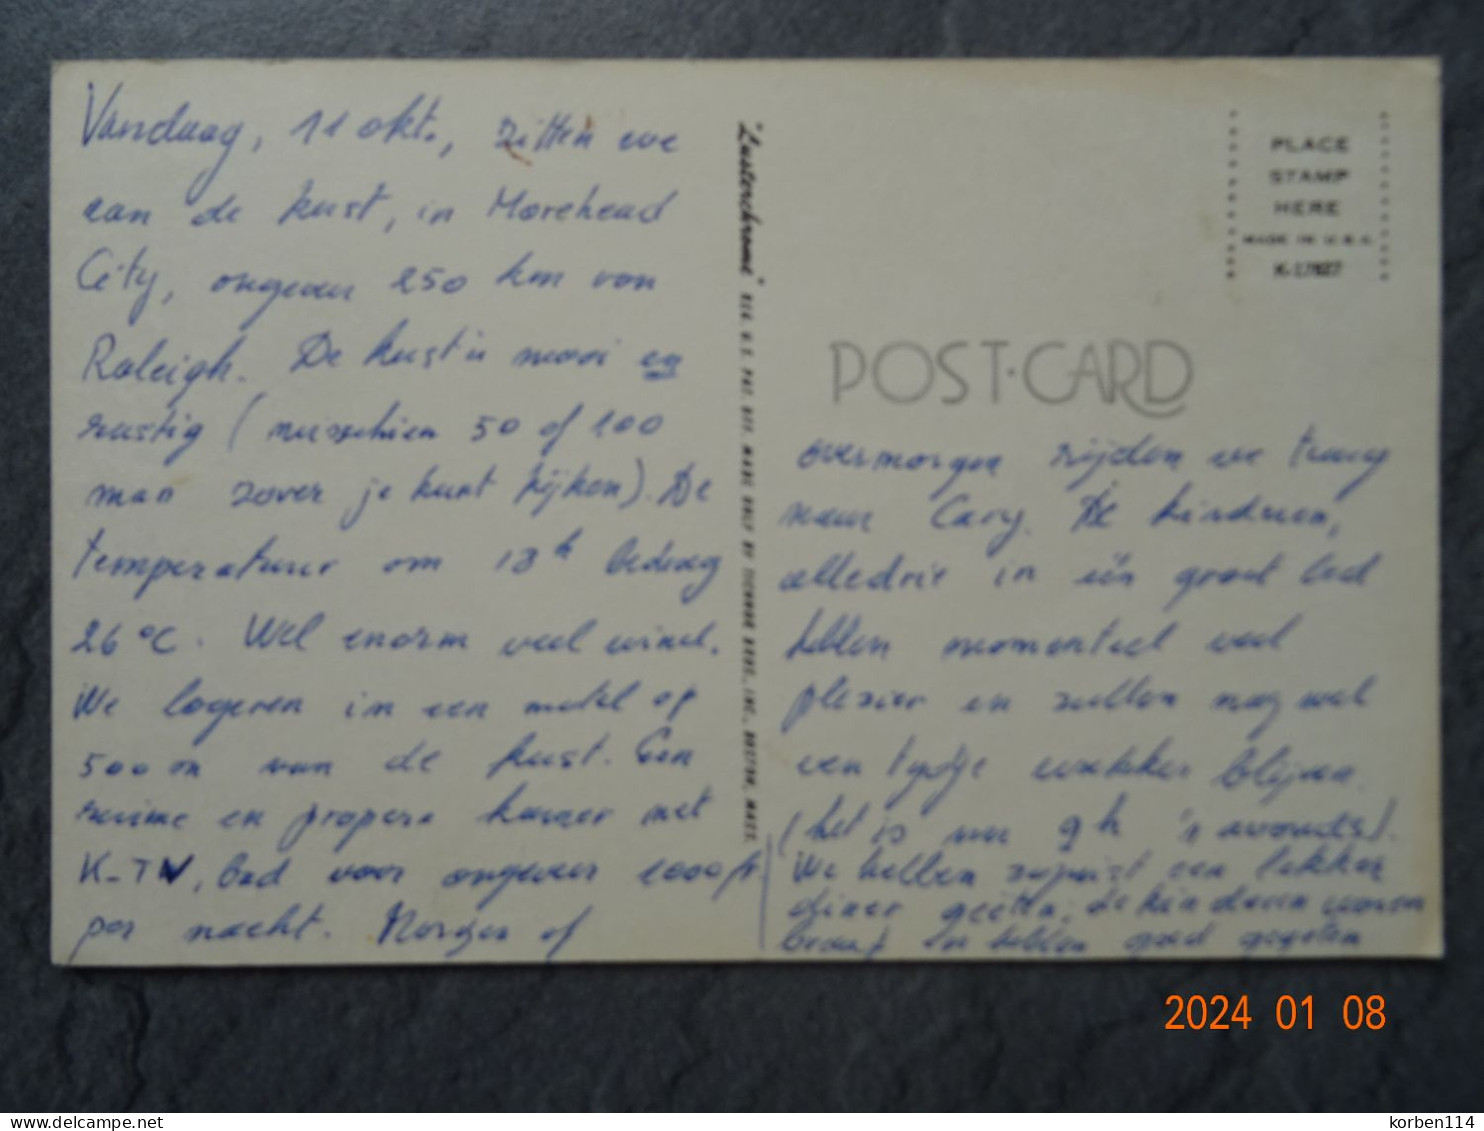 Vandaag, 11 okt., zitten we
aan de kust, in Morehead
City, ongeveer 250 km van
Raleigh. De kust is mooi en
rustig (misschien 50 of 100
man zover je kunt kijken). De
temperatuur om 18h bedraag
26 °C. Wel enorm veel wind.
We logeren in een motel op
500 m van de kust. Een
ruime en propere kamer met
K-TV, bad voor ongeveer 1000 fr
per nacht. Morgen of
"Lusterchrome" REG. U.S. PAT. OFF. MADE ONLY BY TICHNOR BROS., INC., BOSTON, MASS.
PLACE
STAMP
HERE
MADE IN U.S.A.
K-17827
POST·CARD
overmorgen rijden we terug
naar Cary. De kinderen,
alledrie in één groot bed
hebben momenteel veel
plezier en zullen nog wel
een tijdje wakker blijven.
(het is nu 9h 's avonds).
We hebben zojuist een lekker
diner gegeten, de kinderen waren
braaf en hebben goed gegeten
2024 01 08
delcampe.net
korben114